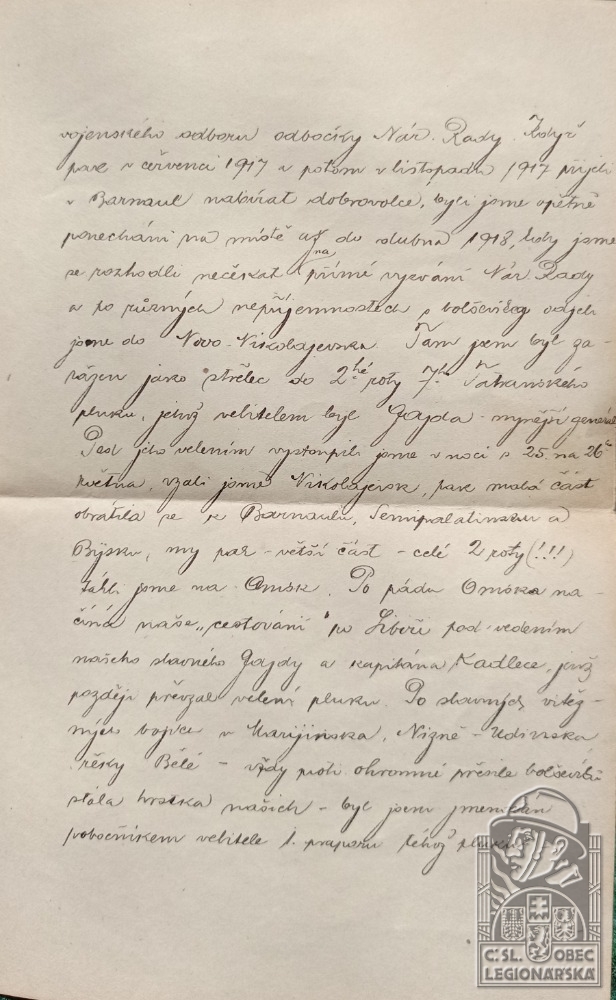 vojenského odboru odbočky Nár. Rady. Když
pak v červenci 1917 a potom v listopadu 1917 přijeli
v Barnaul nabírat dobrovolce, byli jsme opětně
ponecháni na místě až do dubna 1918, kdy jsme
se rozhodli nečekat na přímé vyzvání Nár Rady
a po různých nepříjemnostech s bolševiky odjeli
jsme do Novo-Nikolajevska Tam jsem byl za-
řazen jako střelec do 2hé roty 7h. Tatranského
pluku, jehož velitelem byl Gajda - nynější generál
Pod jeho velením vystoupili jsme v noci s 25. na 26ho
května, vzali jsme Nikolajevsk, pak malá část
obrátila se k Barnaulu, Semipalatinsku a
Bijsku, my pak - větší část - celé 2 roty (!!!)
táhli jsme na Omsk. Po pádu Omska na-
číná naše "cestování" po Sibiři pod vedením
našeho slavného Gajdy a kapitána Kadlece, jenž
později převzal velení pluku. Po slavných vítěz-
ných bojích u Marijinska, Nižně-Udinska
řeky Bělé - vždy proti ohromné přesile bolševiků
stála hrstka našich - byl jsem jmenován
pobočníkem velitele 1. praporu téhož pluku
Č.SL. OBEC
LEGIONÁŘSKÁ